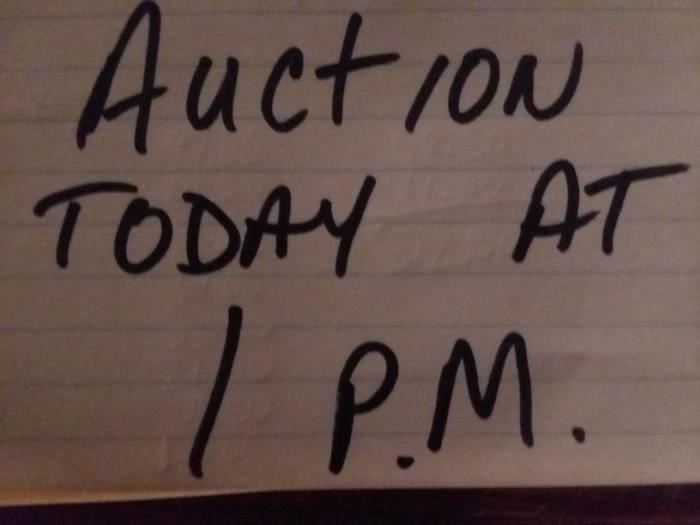 Auction
TODAY AT
1 P.M.